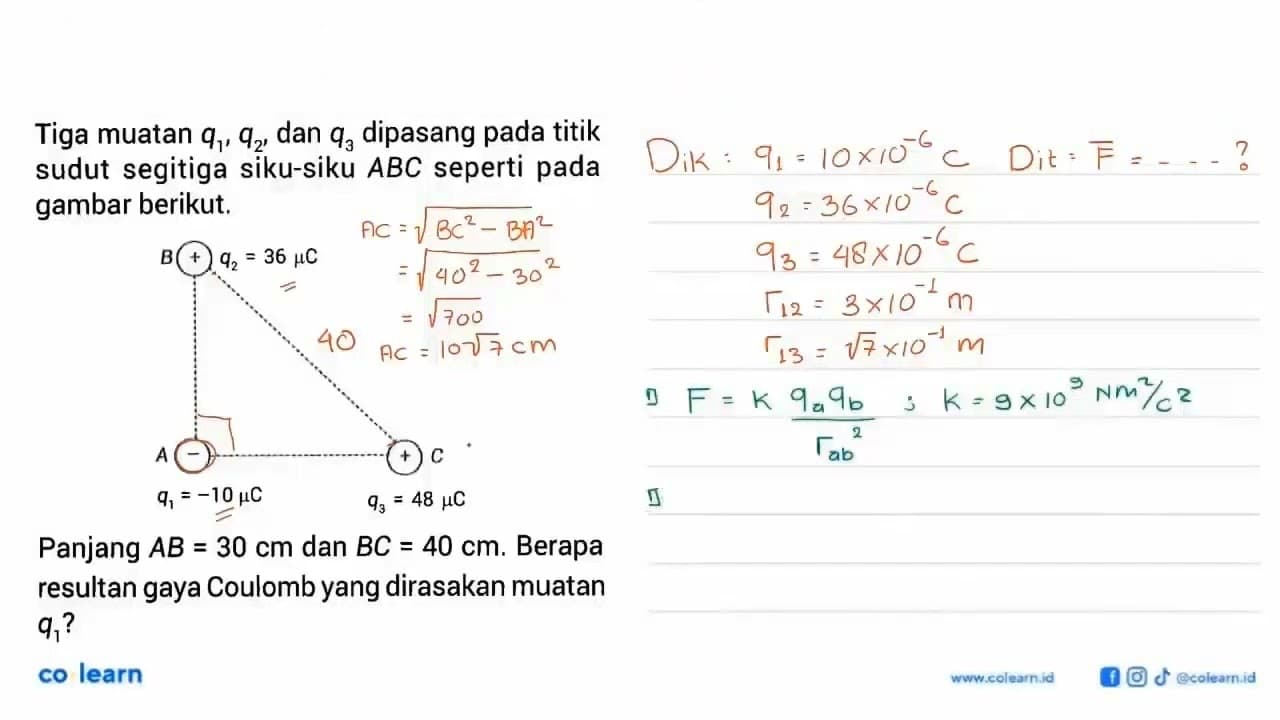 Tiga muatan q₁, q₂, dan q₃ dipasang pada titik
sudut segitiga siku-siku ABC seperti pada
gambar berikut.
AC = √(BC² - BA²)
= √(40² - 30²)
= √700
AC = 10√7 cm
B + q₂ = 36 μC
40
A - + C
q₁ = -10 μC q₃ = 48 μC
Panjang AB = 30 cm dan BC = 40 cm. Berapa
resultan gaya Coulomb yang dirasakan muatan
q₁?
Dik : q1 = 10 × 10⁻⁶ C Dit = F̅ = - - - - ?
q2 = 36 × 10⁻⁶ C
q3 = 48 × 10⁻⁶ C
r12 = 3 × 10⁻¹ m
r13 = √7 × 10⁻¹ m
F = K qa qb / rab² ; K = 9 × 10⁹ Nm²/C²
co learn
www.colearn.id @colearn.id